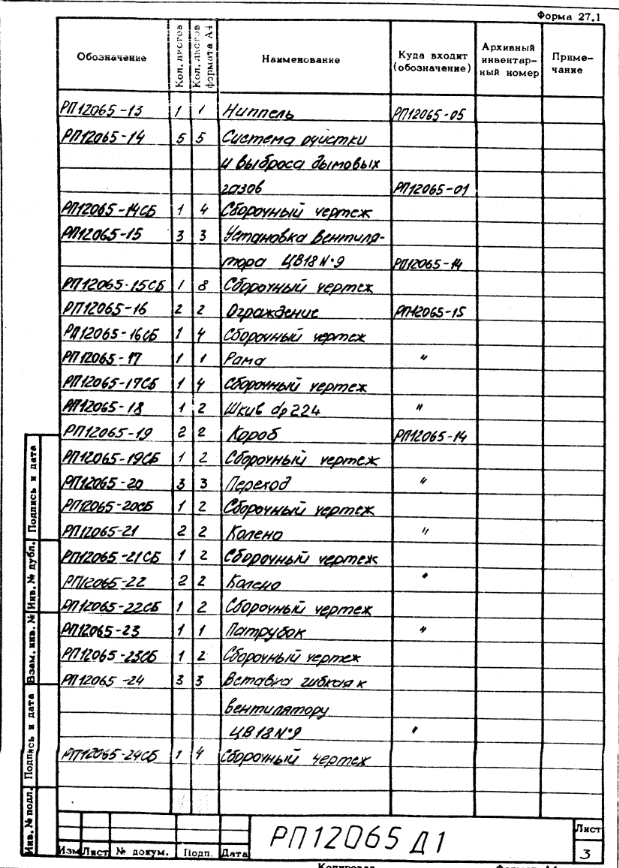 Форма 27.1
Обозначение Кол. листов Кол. листов формата А4 Наименование Куда входит (обозначение) Архивный инвентарный номер Примечание
РП12065-13 1 1 Ниппель РП12065-05
РП12065-14 5 5 Система очистки
и выброса дымовых
газов РП12065-01
РП12065-14СБ 1 4 Сборочный чертеж
РП12065-15 3 3 Установка вентиля-
тора ЦВ18 №9 РП12065-14
РП12065-15СБ 1 8 Сборочный чертеж
РП12065-16 2 2 Ограждение РП12065-15
РП12065-16СБ 1 4 Сборочный чертеж
РП12065-17 1 1 Рама "
РП12065-17СБ 1 4 Сборочный чертеж
РП12065-18 1 2 Шкив dр224 "
РП12065-19 2 2 Короб РП12065-14
РП12065-19СБ 1 2 Сборочный чертеж
РП12065-20 3 3 Переход "
РП12065-20СБ 1 2 Сборочный чертеж
РП12065-21 2 2 Колено "
РП12065-21СБ 1 2 Сборочный чертеж
РП12065-22 2 2 Колено "
РП12065-22СБ 1 2 Сборочный чертеж
РП12065-23 1 1 Патрубок "
РП12065-23СБ 1 2 Сборочный чертеж
РП12065-24 3 3 Вставка гибкая к
вентилятору
ЦВ18 №9 "
РП12065-24СБ 1 4 Сборочный чертеж
Подпись и дата
Инв. № дубл.
Взам. инв. №
Подпись и дата
Инв. № подл.
Изм Лист № докум. Подп. Дата
РП12065 Д1
Лист
3
Копировал